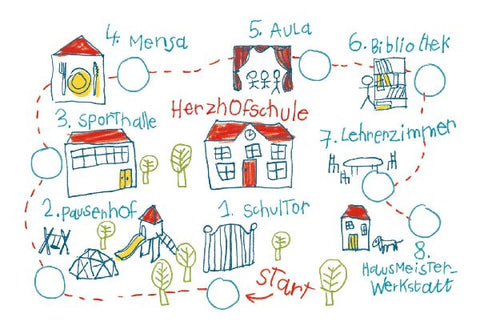 4. Mensa
5. Aula
6. Bibliothek
Herzhofschule
3. Sporthalle
7. Lehrerzimmer
2. Pausenhof
1. Schultor
8.
Hausmeister-
Werkstatt
Start